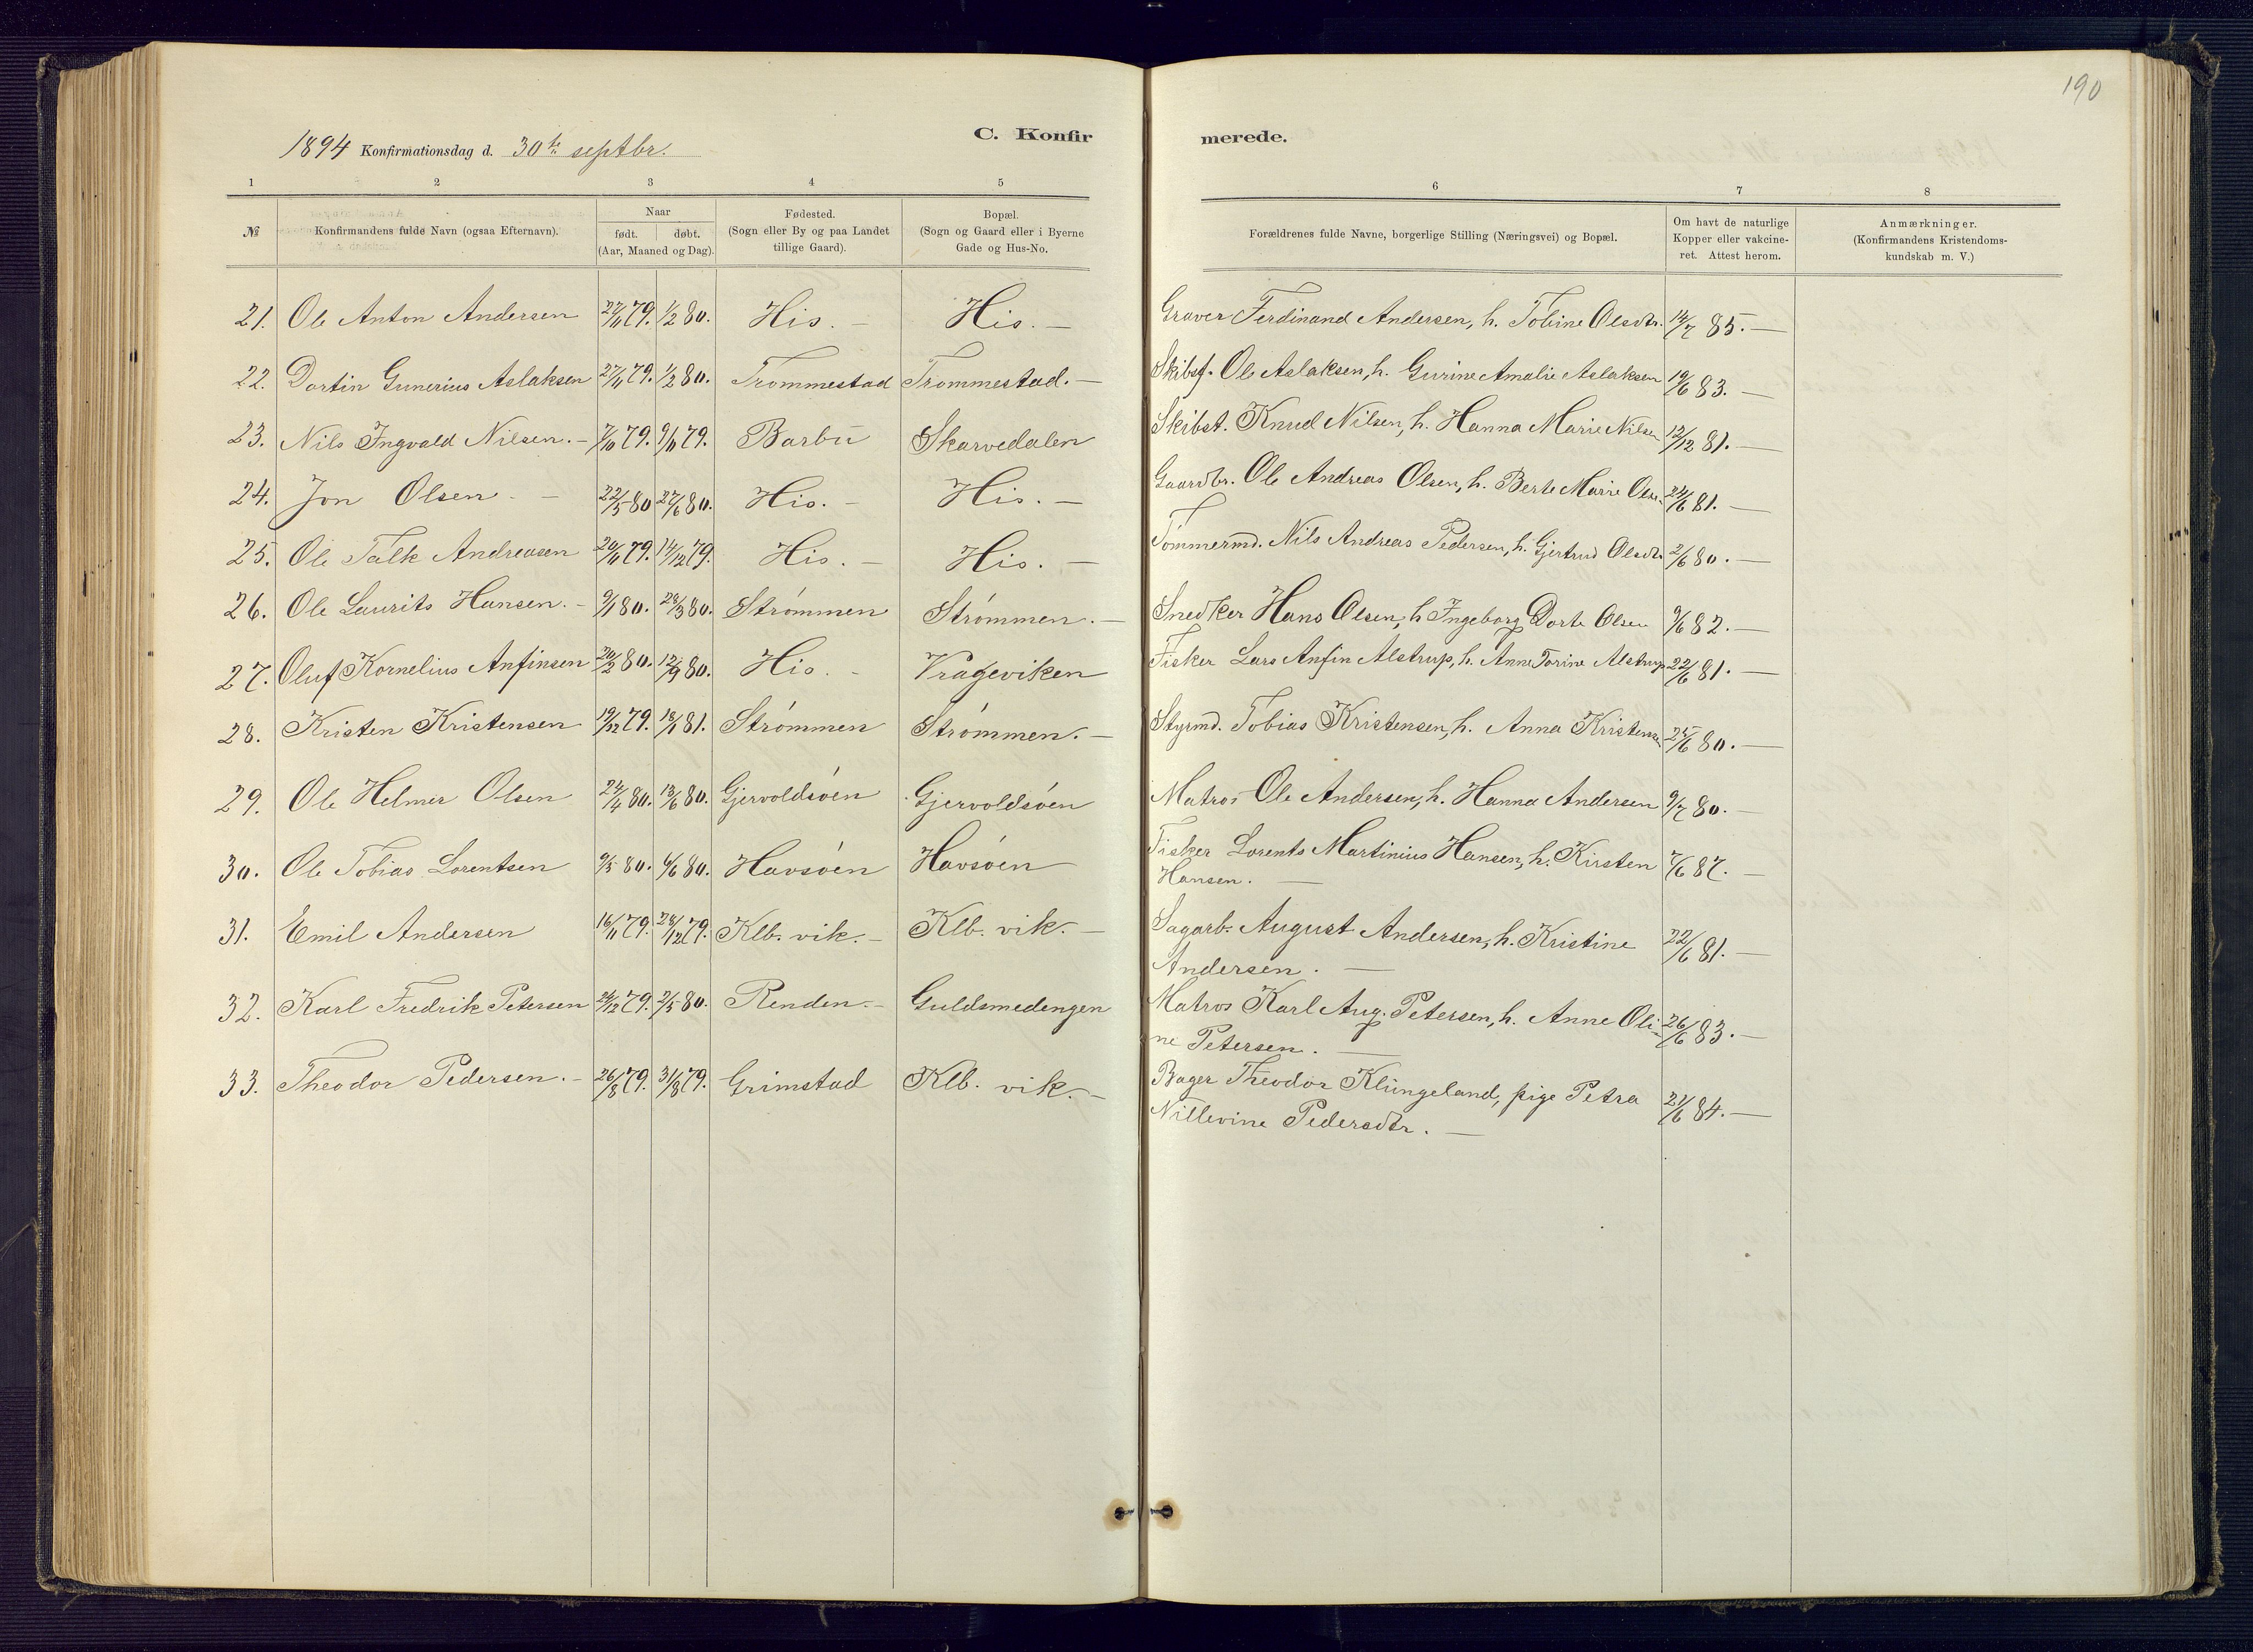 190
C. Konfir merede.
1894 Konfirmationsdag d. 30te septbr.
1 2 3 4 5 6 7 8
№ Konfirmandens fulde Navn (ogsaa Efternavn). Naar født. døbt. (Aar, Maaned og Dag). Fødested. (Sogn eller By og paa Landet tillige Gaard). Bopæl. (Sogn og Gaard eller i Byerne Gade og Hus-No.
Forældrenes fulde Navne, borgerlige Stilling (Næringsvei) og Bopæl. Om havt de naturlige Kopper eller vakcineret. Attest herom. Anmærkninger. (Konfirmandens Kristendomskundskab m. V.)
21. Ole Anton Andersen 27/11 79. 1/2 80. His. – His. – Graver Ferdinand Andersen, h. Tobine Olsdtr. 14/7 85. –
22. Dortin Gunerius Aslaksen 27/11 79. 1/2 80. Trommestad Trommestad. – Skibsf. Ole Aslaksen, h. Gurine Amalie Aslaksen 19/6 83. –
23. Nils Ingvald Nilsen. – 7/10 79. 9/11 79. Barbu Skarvedalen Skibst. Knud Nilsen, h. Hanna Marie Nilsen 12/12 81. –
24. Jon Olsen. – 22/5 80 27/6 80. His. – His. – Gaardbr. Ole Andreas Olsen, h. Berte Marie Olse. 22/6 81. –
25. Ole Falk Andreasen 20/11 79. 14/12 79. His. – His. – Tømmermd. Nils Andreas Pedersen, h. Gjertrud Olsdtr. 2/6 80. –
26. Ole Laurits Hansen. – 9/1 80. 28/3 80. Strømmen Strømmen. – Snedker Hans Olsen, h Ingeborg Dorte Olsen 9/6 82. –
27. Oluf Kornelius Anfinsen 20/2 80. 12/9 80. His. – Vrageviken Fisker Lars Anfin Alstrup, h. Anne Torine Alstrup 22/6 81. –
28. Kristen Kristensen 19/12 79. 18/1 81. Strømmen Strømmen. – Styrmd. Tobias Kristensen, h. Anna Kristensen 25/6 80. –
29. Ole Helmer Olsen 24/4 80. 13/6 80. Gjervoldsøen Gjervoldsøen Matros Ole Andersen, h. Hanna Andersen 9/7 80. –
30. Ole Tobias Lorentsen 9/5 80. 6/6 80. Havsøen Havsøen Fisker Lorents Martinius Hansen, h. Kirsten 7/6 87. –
Hansen. –
31. Emil Andersen 16/11 79. 28/12 79. Klb. vik. – Klb. vik. – Sagarb. August Andersen, h. Kristine 22/6 81. –
Andersen. –
32. Karl Fredrik Petersen 24/12 79. 2/5 80. Renden. – Guldsmedengen Matros Karl Aug. Petersen, h. Anne Oli- 26/6 83. –
ne Petersen. –
33. Theodor Pedersen. – 26/8 79. 31/8 79. Grimstad Klb. vik. – Bager Theodor Klüngeland, pige Petra 21/6 84. –
Nillevine Pedersdtr. –